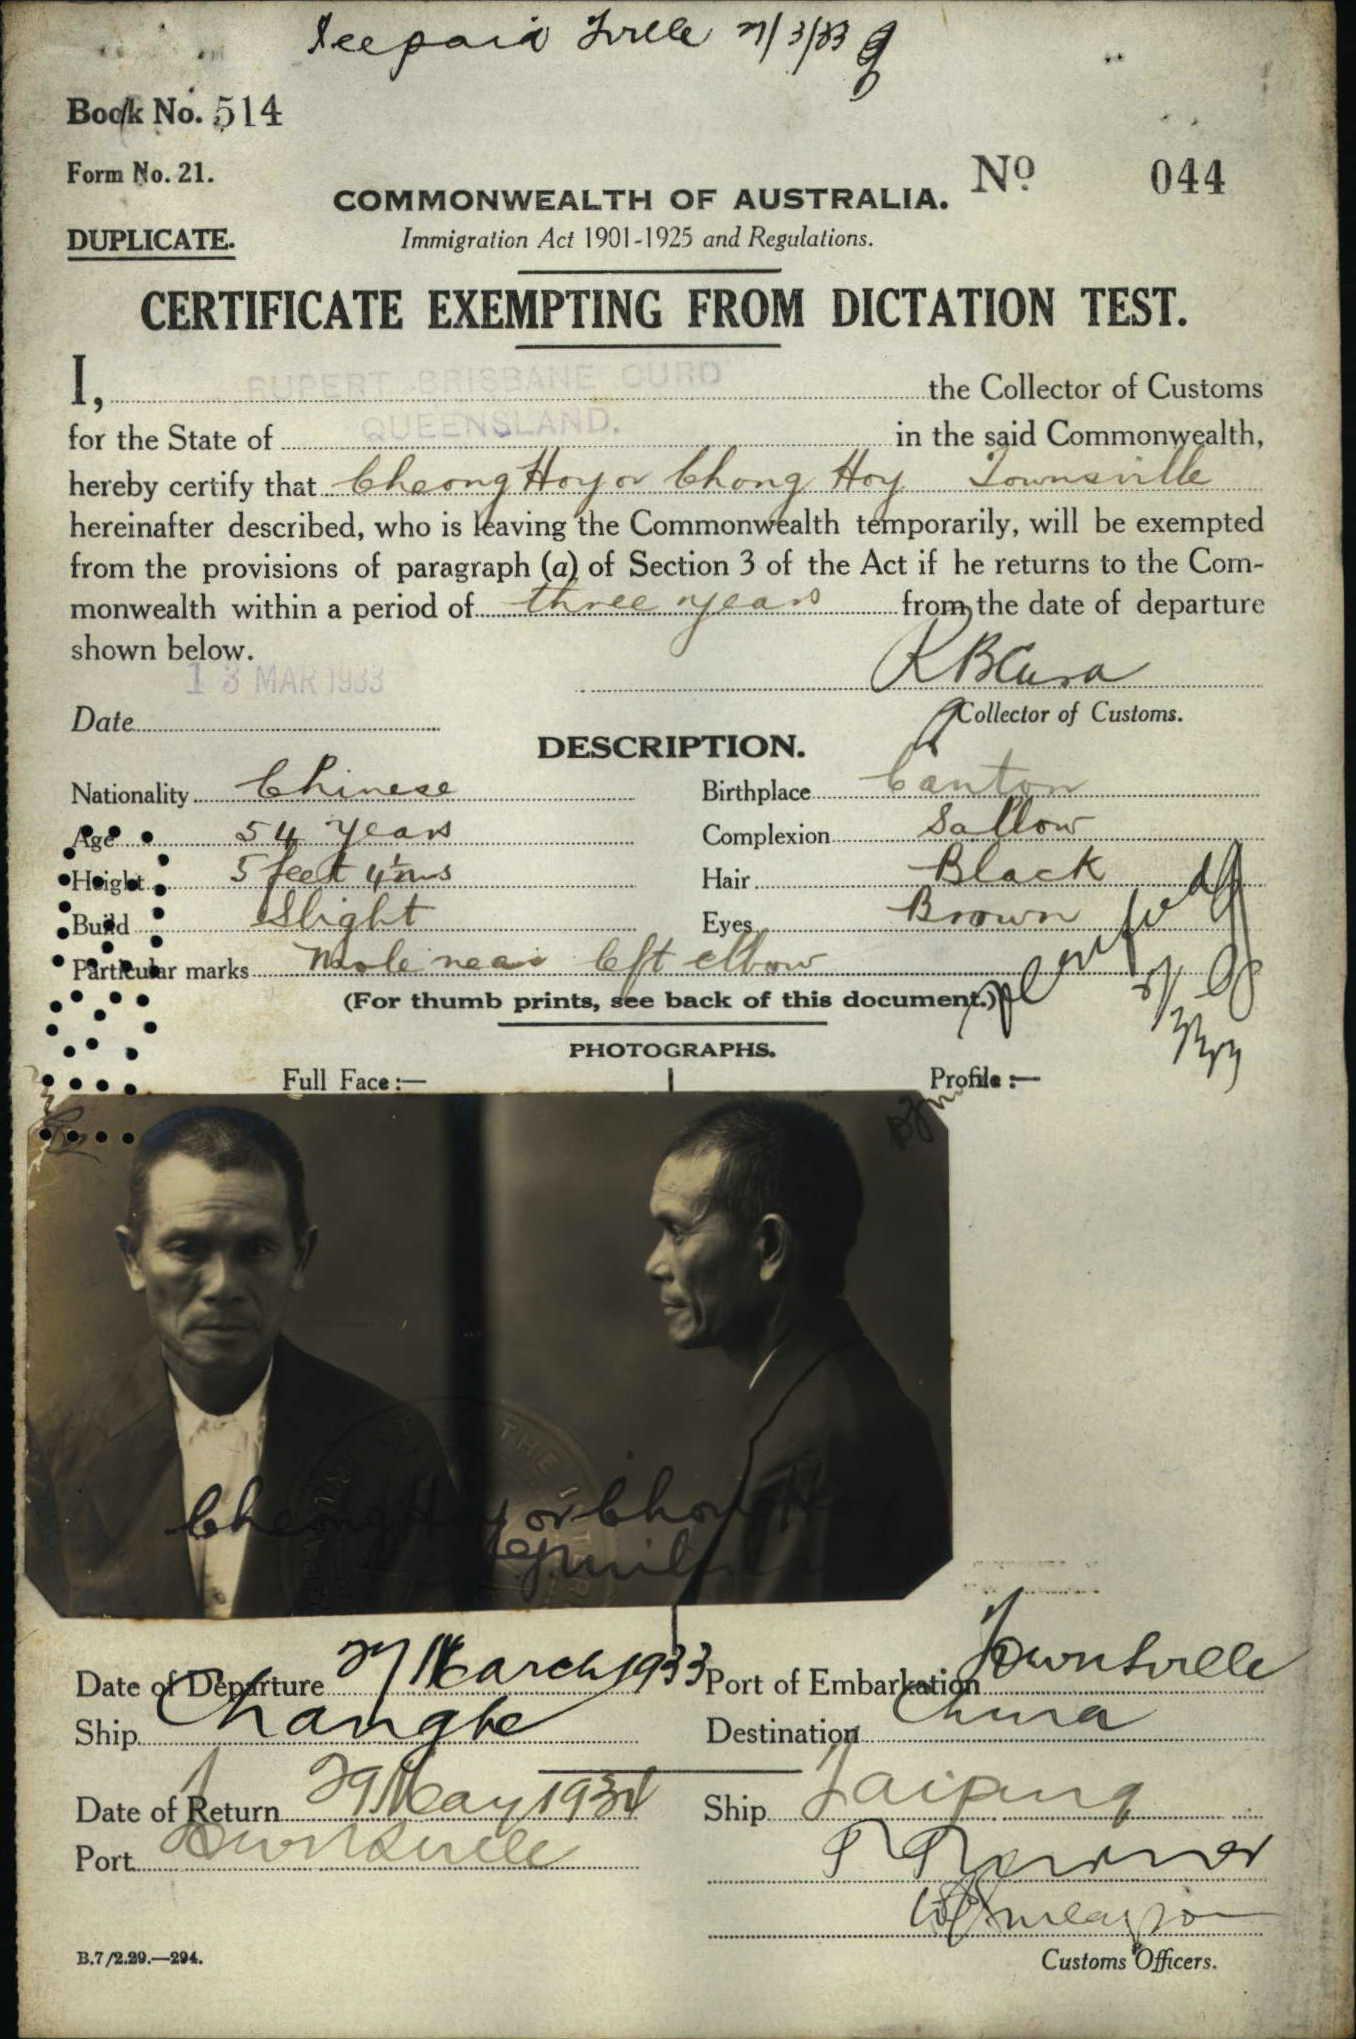 Fee paid Tville 27/3/33
Book No. 514
Form No. 21.
No 044
COMMONWEALTH OF AUSTRALIA.
DUPLICATE.
Immigration Act 1901-1925 and Regulations.
CERTIFICATE EXEMPTING FROM DICTATION TEST.
I, RUPERT BRISBANE CURD the Collector of Customs
for the State of QUEENSLAND. in the said Commonwealth,
hereby certify that Cheong Hoy or Chong Hoy Townsville
hereinafter described, who is leaving the Commonwealth temporarily, will be exempted
from the provisions of paragraph (a) of Section 3 of the Act if he returns to the Com-
monwealth within a period of three years from the date of departure
shown below.
13 MAR 1933
Date
Collector of Customs.
DESCRIPTION.
Nationality Chinese Birthplace Canton
Age 54 years Complexion Sallow
Height 5 feet 4½ ins Hair Black
Build Slight Eyes Brown
Particular marks Mole near left elbow
(For thumb prints, see back of this document.)
PHOTOGRAPHS.
Full Face:— Profile:—
Cheong Hoy or Chong
Date of Departure 27 March 1933 Port of Embarkation Townsville
Ship Changte Destination China
Date of Return 29 May 1934 Ship Taiping
Port Townsville
Customs Officers.
B.7/2.29.—294.